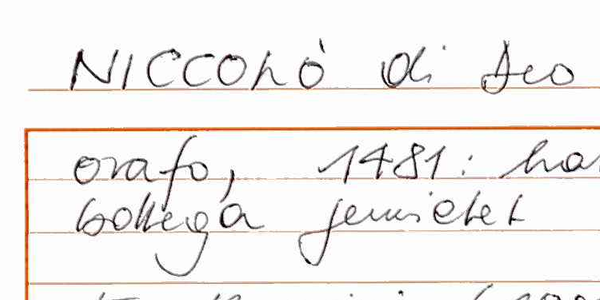 NICCOLÒ di Deo
orafo, 1481: hat
bottega gemietet